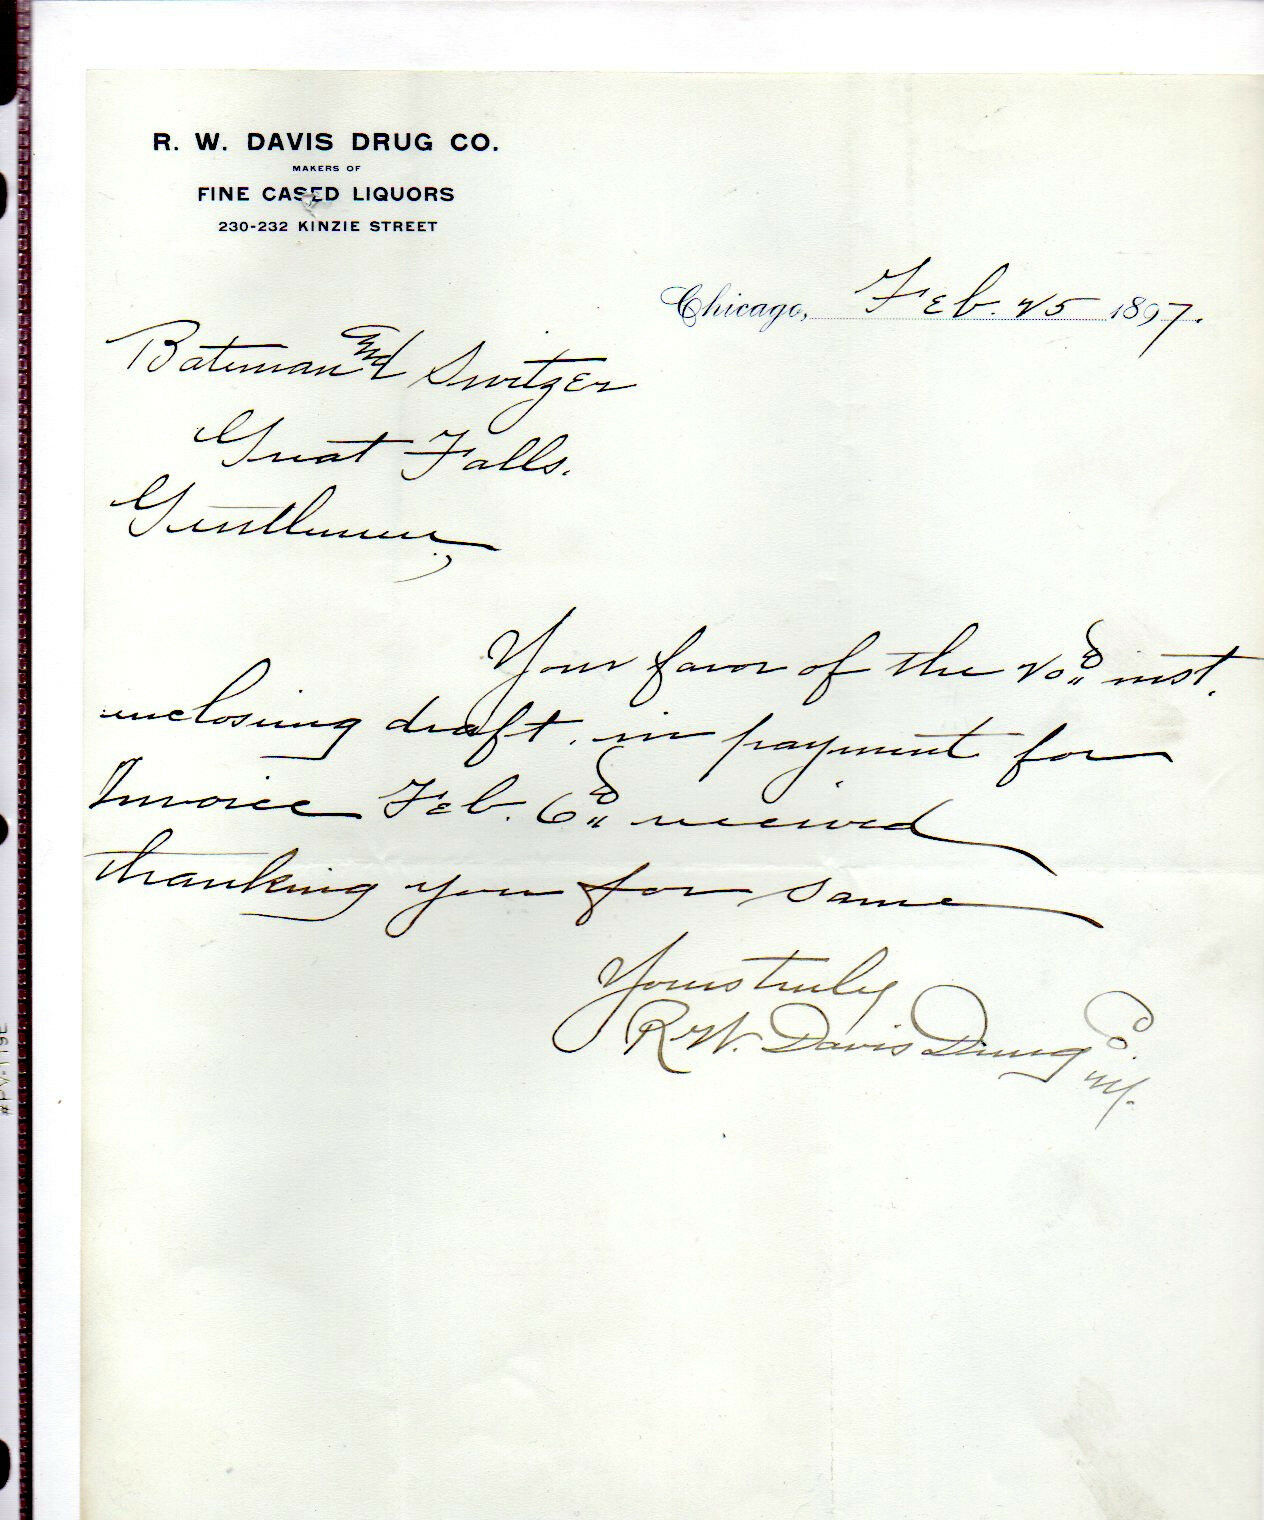 R. W. DAVIS DRUG CO.
MAKERS OF
FINE CASED LIQUORS
230-232 KINZIE STREET
Chicago, Feb. 25 1897.
Bateman and Switzer
Great Falls.
Gentlemen,
Your favor of the 20th inst.
enclosing draft. in payment for
Invoice Feb. 6th received
thanking you for same
Yours truly
R.W. Davis Drug Co.
M.
#PV-119E